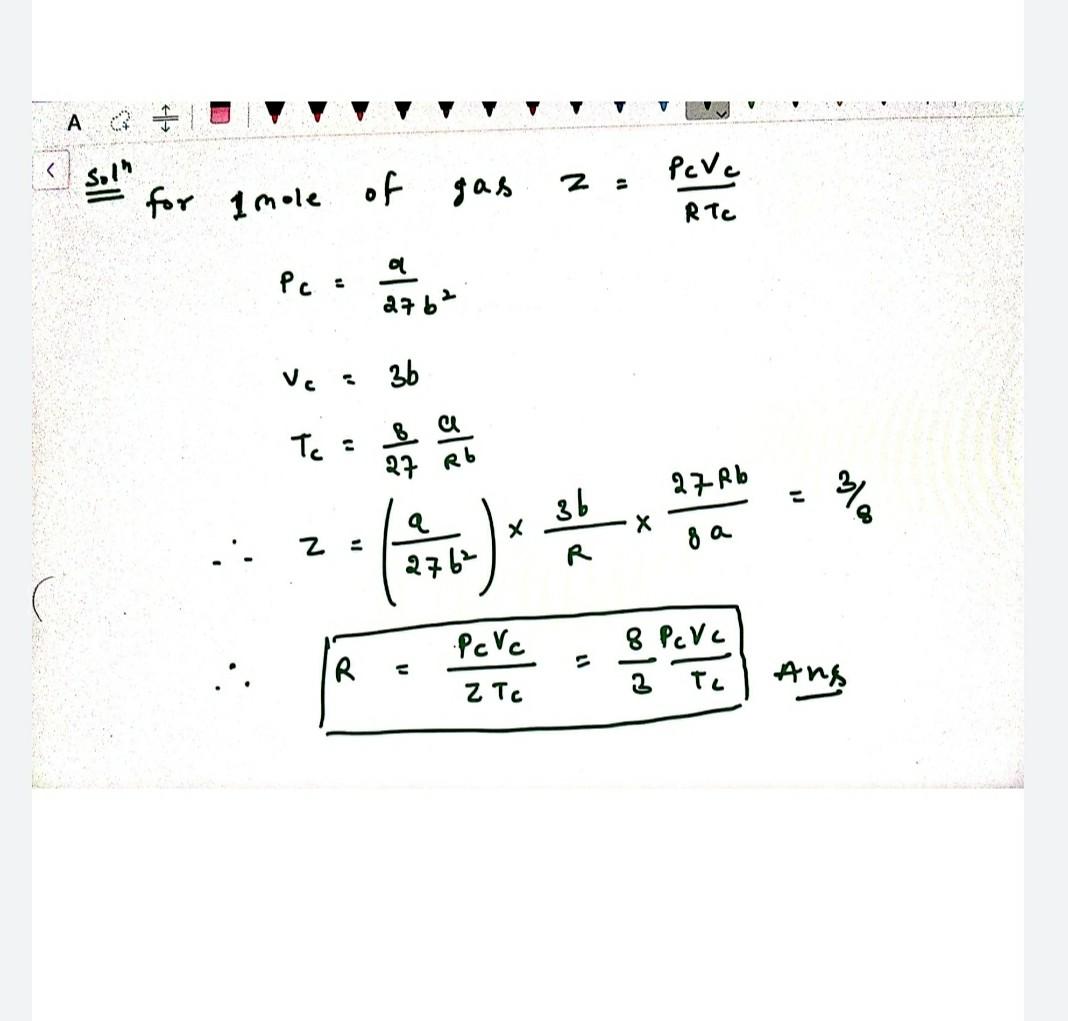 A
Solⁿ for 1 mole of gas Z = PcVc / RTc
Pc = a / 27b²
Vc = 3b
Tc = 8/27 a/Rb
∴ Z = (a / 27b²) × 3b / R × 27Rb / 8a = 3/8
∴ R = PcVc / ZTc = 8/3 PcVc / Tc Ans